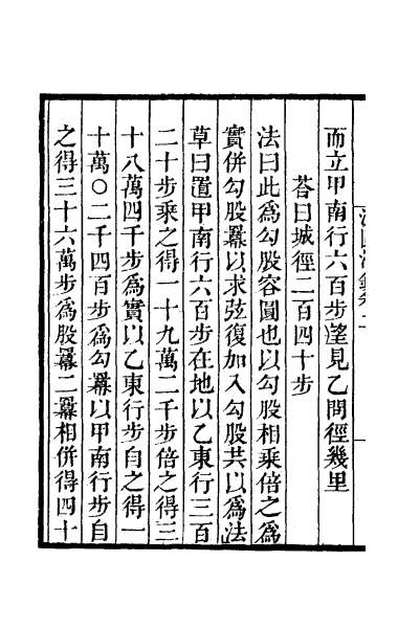 而立甲南行六百步望見乙問徑幾里
荅曰城徑二百四十步
法曰此爲勾股容圓也以勾股相乘倍之爲
實併勾股羃以求弦復加入勾股共以爲法
草曰置甲南行六百步在地以乙東行三百
二十步乘之得一十九萬二千步倍之得三
十八萬四千步爲實以乙東行步自之得一
十萬〇二千四百步爲勾羃以甲南行步自
之得三十六萬步爲股羃二羃相併得四十